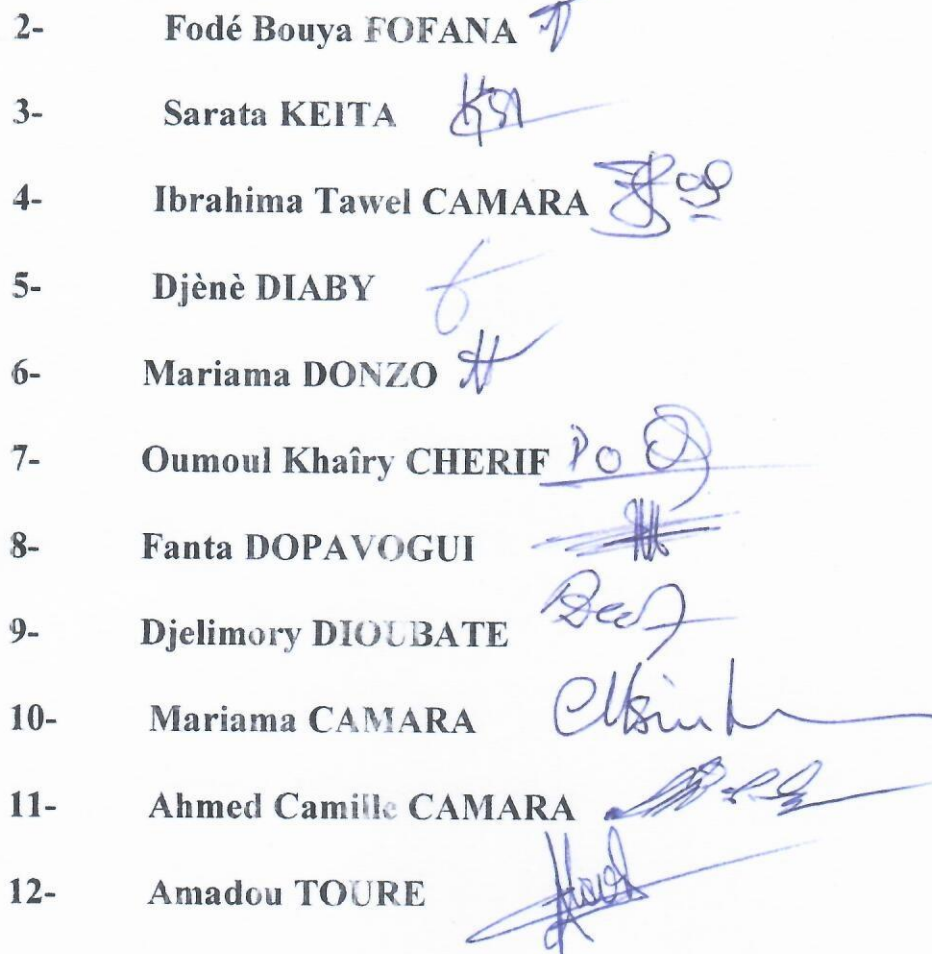 2- Fodé Bouya FOFANA
3- Sarata KEITA
4- Ibrahima Tawel CAMARA
5- Djènè DIABY
6- Mariama DONZO
7- Oumoul Khaîry CHERIF PO
8- Fanta DOPAVOGUI
9- Djelimory DIOUBATE
10- Mariama CAMARA
11- Ahmed Camille CAMARA
12- Amadou TOURE